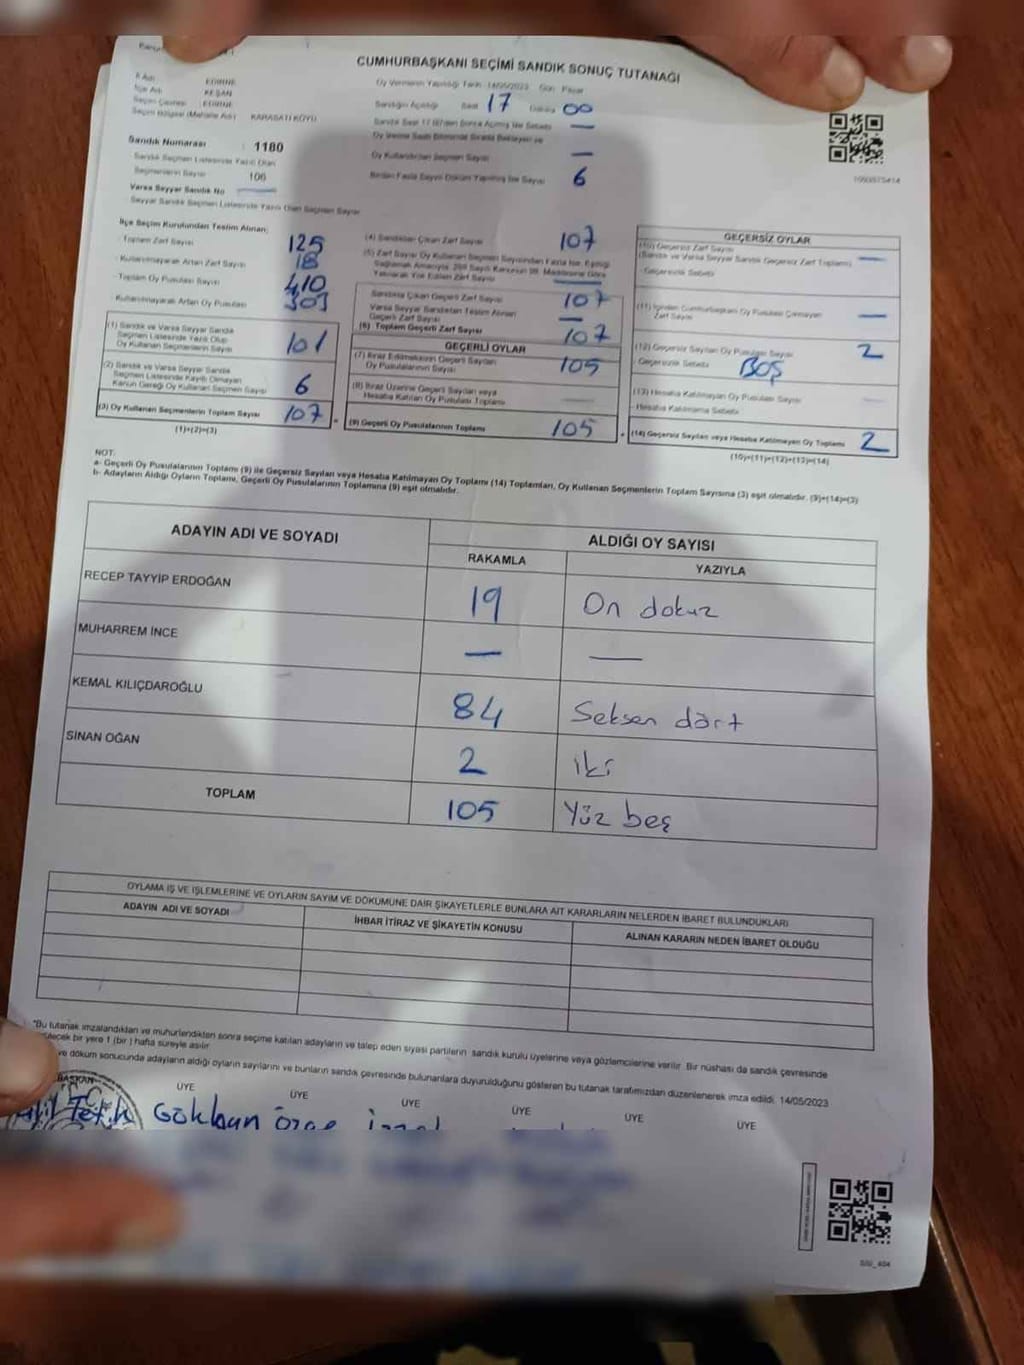 CUMHURBAŞKANI SEÇİMİ SANDIK SONUÇ TUTANAĞI
İl Adı EDİRNE
İlçe Adı KEŞAN
Seçim Çevresi EDİRNE
Seçim Bölgesi (Mahalle Adı) KARASATI KÖYÜ
Sandık Numarası : 1180
Sandık Seçmen Listesinde Yazılı Olan
Seçmenlerin Sayısı 106
Varsa Seyyar Sandık No
Seyyar Sandık Seçmen Listesinde Yazılı Olan Seçmen Sayısı
Oy Vermenin Yapıldığı Tarih 14/05/2023 Gün Pazar
Sandığın Açıldığı Saat 17 Dakika 00
Oy Kullandırılan Seçmen Sayısı —
Birden Fazla Sayım Döküm Yapılmış İse Sayısı 6
1090075414
İlçe Seçim Kurulundan Teslim Alınan;
- Toplam Zarf Sayısı 125
- Kullanılmayarak Artan Zarf Sayısı 18
- Toplam Oy Pusulası Sayısı 410
- Kullanılmayarak Artan Oy Pusulası 303
(1) Sandık ve Varsa Seyyar Sandık
Seçmen Listesinde Yazılı Olup
Oy Kullanan Seçmenlerin Sayısı 101
(2) Sandık ve Varsa Seyyar Sandık
Seçmen Listesinde Kayıtlı Olmayan
Kanun Gereği Oy Kullanan Seçmen Sayısı 6
(3) Oy Kullanan Seçmenlerin Toplam Sayısı 107
(1)+(2)=(3)
(4) Sandıktan Çıkan Zarf Sayısı 107
Sandıkta Çıkan Geçerli Zarf Sayısı 107
Varsa Seyyar Sandıktan Teslim Alınan
Geçerli Zarf Sayısı —
(6) Toplam Geçerli Zarf Sayısı 107
GEÇERLİ OYLAR
(7) İtiraz Edilmeksizin Geçerli Sayılan
Oy Pusulalarının Sayısı 105
(8) İtiraz Üzerine Geçerli Sayılan veya
Hesaba Katılan Oy Pusulası Toplamı
(9) Geçerli Oy Pusulalarının Toplamı 105
GEÇERSİZ OYLAR
(10) Geçersiz Zarf Sayısı
(Sandık ve Varsa Seyyar Sandık Geçersiz Zarf Toplamı) —
- Geçersizlik Sebebi
(11) İçinden Cumhurbaşkanı Oy Pusulası Çıkmayan
Zarf Sayısı —
(12) Geçersiz Sayılan Oy Pusulası Sayısı 2
- Geçersizlik Sebebi BOŞ
(13) Hesaba Katılmayan Oy Pusulası Sayısı
- Hesaba Katılmama Sebebi
(14) Geçersiz Sayılan veya Hesaba Katılmayan Oy Toplamı 2
(10)+(11)+(12)+(13)=(14)
NOT:
a- Geçerli Oy Pusulalarının Toplamı (9) ile Geçersiz Sayılan veya Hesaba Katılmayan Oy Toplamı (14) Toplamları, Oy Kullanan Seçmenlerin Toplam Sayısına (3) eşit olmalıdır. (9)+(14)=(3)
b- Adayların Aldığı Oyların Toplamı, Geçerli Oy Pusulalarının Toplamına (9) eşit olmalıdır.
ADAYIN ADI VE SOYADI
ALDIĞI OY SAYISI
RAKAMLA YAZIYLA
RECEP TAYYİP ERDOĞAN 19 On dokuz
MUHARREM İNCE — —
KEMAL KILIÇDAROĞLU 84 Seksen dört
SİNAN OĞAN 2 iki
TOPLAM 105 Yüz beş
OYLAMA İŞ VE İŞLEMLERİNE VE OYLARIN SAYIM VE DÖKÜMÜNE DAİR ŞİKAYETLERLE BUNLARA AİT KARARLARIN NELERDEN İBARET BULUNDUKLARI
ADAYIN ADI VE SOYADI
İHBAR İTİRAZ VE ŞİKAYETİN KONUSU
ALINAN KARARIN NEDEN İBARET OLDUĞU
*Bu tutanak imzalandıktan ve mühürlendikten sonra seçime katılan adayların ve talep eden siyasi partilerin sandık kurulu üyelerine veya gözlemcilerine verilir. Bir nüshası da sandık çevresinde
bir yere 1 (bir) hafta süreyle asılır.
ve döküm sonucunda adayların aldığı oyların sayılarını ve bunların sandık çevresinde bulunanlara duyurulduğunu gösteren bu tutanak tarafımızdan düzenlenerek imza edildi. 14/05/2023
BAŞKAN ÜYE ÜYE ÜYE ÜYE ÜYE ÜYE
Gökhan